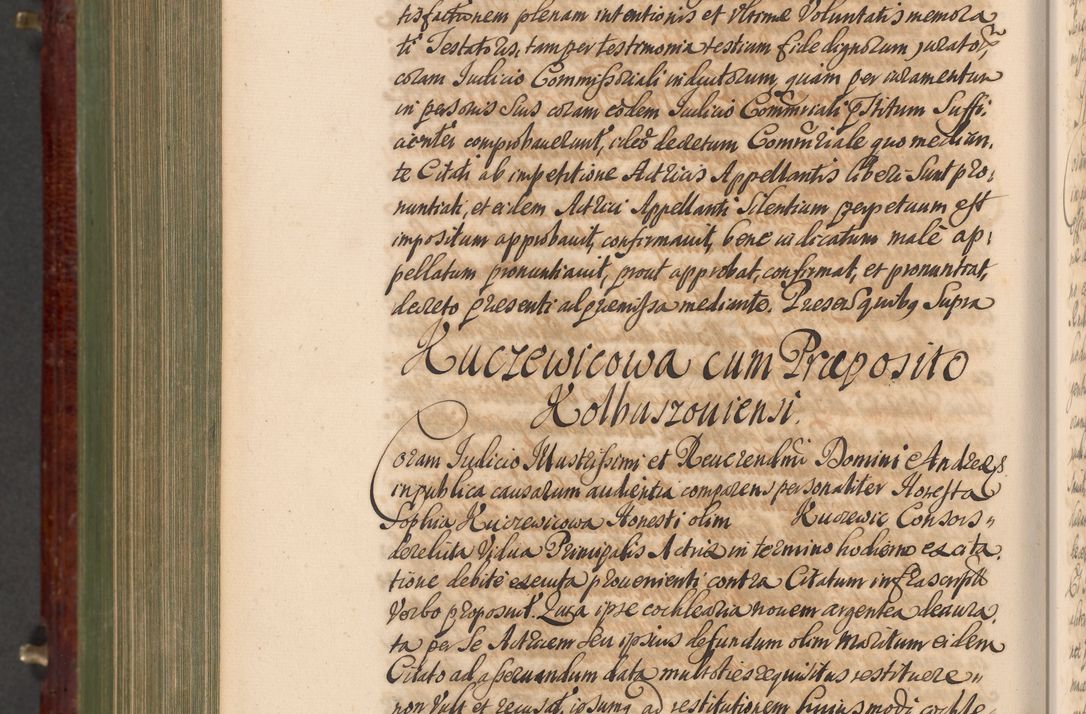 tisfactionem plenam intentionis et vltimæ Voluntatis memora
ti Testatoris, tam per testimonia testium fide dignorum jurator,
coram Iudicio Commissoriali inductorum, quàm per iuramentum
in personis suis coram eodem Iudicio Com̃riali pstitum Suffi,
cienter comprobauerunt, ideo decretum Com̃iriale quo median,
te Citati ab impetitione Actricis Appellantis liberi Sunt pro,
nuntiati, et eidem Actrici Appellanti Silentium perpetuum est
impositum approbauit, confirmauit, bene iudicatum malè ap,
pellatum pronuntiauit, prout approbat, confirmat, et pronuntiat,
decreto præsenti ad præmissa mediante. Præsen quibq Supra
Kuczewicowa cum Præposito
Kolbuszouiensi.
Coram Iudicio Illustrissimi et Reuerendmi Domini Andreæ
in publica causarum audientia comparens personaliter Honesta
Sophia Kuczewicowa Honesti olim Kuczewic Consors
derelicta Vidua Principalis Actrix in termino hodierno ex cita,
tione debitè executa prouenienti contra Citatum infrascriptū
Verbo proposuit. Quia ipse cochlearia nouem argentea deaura,
ta per se Actricem seu ipsius defunctum olim maritum eidem
Citato ad asseruandum data multoties requisitus restituere
non vult et recusat, ipsumq ad restitutionem huiusmodi cochle